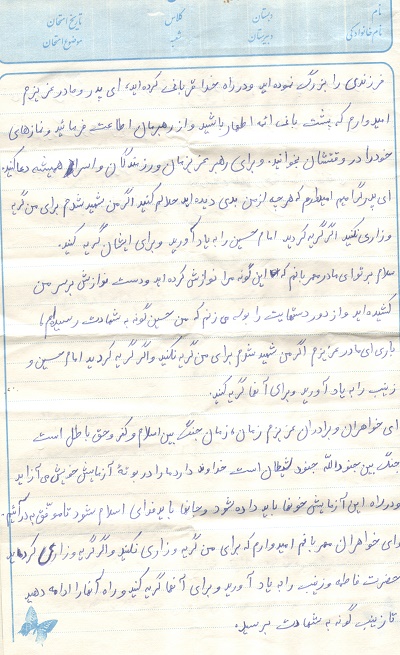 نام
نام خانوادگی
دبستان
دبیرستان
کلاس
شعبه
تاریخ امتحان
موضوع امتحان
فرزندی را بزرگ نموده اید و در راه خدا قربانی کرده اید، ای پدر و مادر عزیزم
امیدوارم که پشت باغ ائمه اطهار باشید و از رهبرمان اطاعت فرمائید و نمازهای
خود را در وقتشان بخوانید. و برای رهبر عزیزمان و رزمندگان و اسرا همیشه دعا کنید.
ای پدر گرامیم امیدوارم که هر چه از من بدی دیده اید حلالم کنید اگر من شهید شدم برای من گریه
و زاری نکنید اگر گریه کردید امام حسین را به یاد آورید و برای ایشان گریه کنید.
سلام بر تو ای مادر مهربانم که این گونه مرا نوازش کرده اید و دست نوازش بر سر من
کشیده اید و از دور دستهایت را بوسه می زنم که من حسین گونه به شهادت رسیده ام،
باری ای مادر عزیزم اگر من شهید شدم برای من گریه نکنید و اگر گریه کردید امام حسین و
زینب را به یاد آورید و برای آنها گریه کنید.
ای خواهران و برادران عزیزم زمان، زمان جنگ بین اسلام و کفر و حق باطل است
جنگ بین جنود الله جنود شیطان است خداوند دارد ما را در بوتهٔ آزمایش خویش می آزماید
و در راه این آزمایش خونها باید داده شود و جانها باید فدای اسلام شود تا موفق به درآئیم.
و ای خواهران مهربانم امیدوارم که برای من گریه و زاری نکنید و اگر گریه و زاری کردید
حضرت فاطمه و زینب را به یاد آورید و برای آنها گریه کنید و راه آنها را ادامه دهید
تا زینب گونه به شهادت برسید.